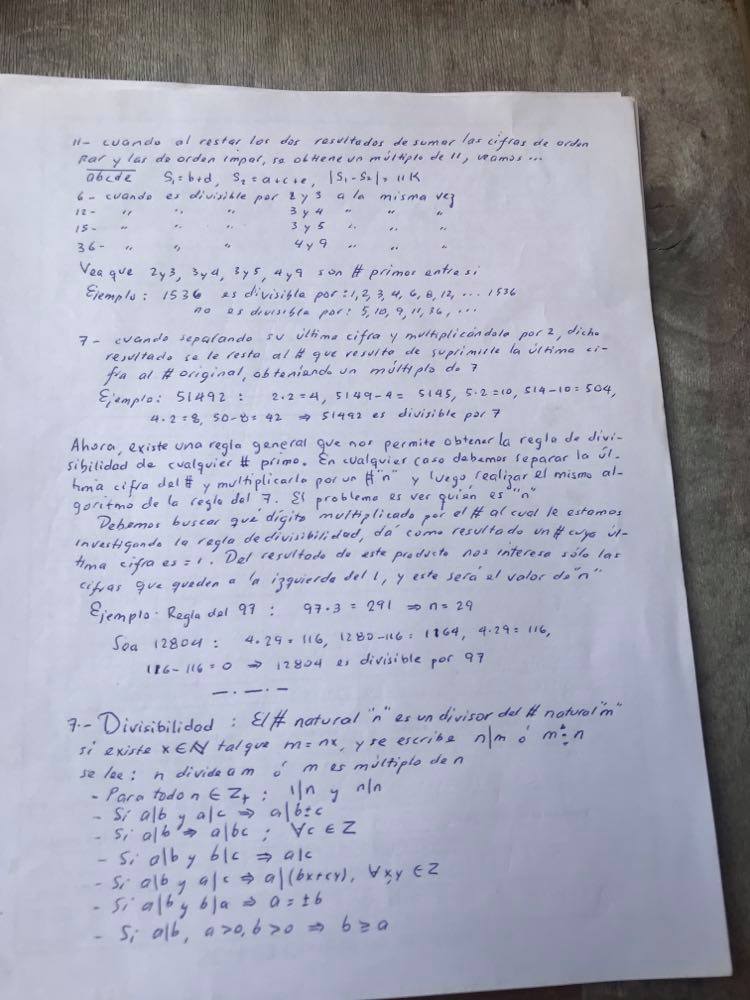 11- cuando al restar los dos resultados de sumar las cifras de orden
par y las de orden impar, se obtiene un múltiplo de 11, veamos ...
abcde S₁=b+d, S₂=a+c+e, |S₁-S₂|=11K
6- cuando es divisible por 2 y 3 a la misma vez
12- " " " 3 y 4 " " "
15- " " " 3 y 5 " " "
36- " " " 4 y 9 " " "
Vea que 2y3, 3y4, 3y5, 4y9 son # primos entre si
Ejemplo: 1536 es divisible por: 1,2,3,4,6,8,12, ... 1536
no es divisible por: 5,10,9,11,36, ...
7- cuando separando su última cifra y multiplicándola por 2, dicho
resultado se le resta al # que resulta de suprimirle la última ci-
fra al # original, obteniendo un múltiplo de 7
Ejemplo: 51492 : 2·2=4, 5149-4= 5145, 5·2=10, 514-10=504,
4·2=8, 50-8=42 ⇒ 51492 es divisible por 7
Ahora, existe una regla general que nos permite obtener la regla de divi-
sibilidad de cualquier # primo. En cualquier caso debemos separar la úl-
tima cifra del # y multiplicarla por un # "n" y luego realizar el mismo al-
goritmo de la regla del 7. El problema es ver quién es "n"
Debemos buscar qué dígito multiplicado por el # al cual le estamos
investigando la regla de divisibilidad, dá como resultado un # cuya úl-
tima cifra es = 1. Del resultado de este producto nos interesa sólo las
cifras que queden a la izquierda del 1, y este será el valor de "n"
Ejemplo· Regla del 97 : 97·3 = 291 ⇒ n=29
Sea 12804 : 4·29=116, 1280-116=1164, 4·29=116,
116-116=0 ⇒ 12804 es divisible por 97
—·—·—
7.- Divisibilidad : El # natural "n" es un divisor del # natural "m"
si existe x∈N tal que m=nx, y se escribe n|m ó m⋮n
se lee: n divide a m ó m es múltiplo de n
- Para todo n ∈ Z₊ : 1|n y n|n
- Si a|b y a|c ⇒ a|b±c
- Si a|b ⇒ a|bc ; ∀c ∈ Z
- Si a|b y b|c ⇒ a|c
- Si a|b y a|c ⇒ a|(bx+cy), ∀x,y ∈ Z
- Si a|b y b|a ⇒ a=±b
- Si a|b, a>0, b>0 ⇒ b≥a